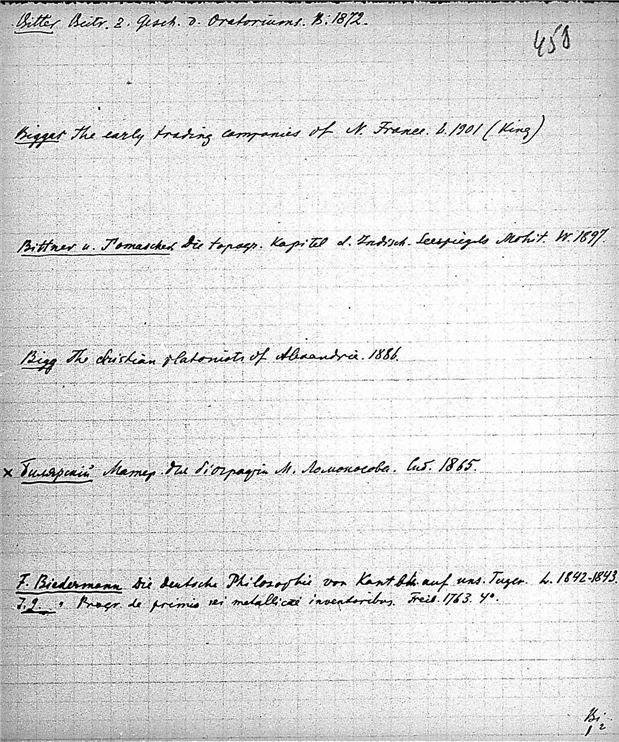 Bitter Beitr. z. Gesch. d. Oratoriums. B. 1872.
458
Biggar The early trading companies of N. France. L. 1901 (King)
Bittner u. Tomaschek Die topogr. Kapitel d. Indisch. Seespiegels Mohit. W. 1897.
Bigg The christian platonists of Alexandria. 1886.
× Билярскій Матер. для біографіи М. Ломоносова. Спб. 1865.
F. Biedermann Die deutsche Philosophie von Kant bis auf uns. Tage. L. 1842-1843.
J. g. " Progr. de primis rei metallicae inventoribus. Freib. 1763. 4°.
Bi
1 2